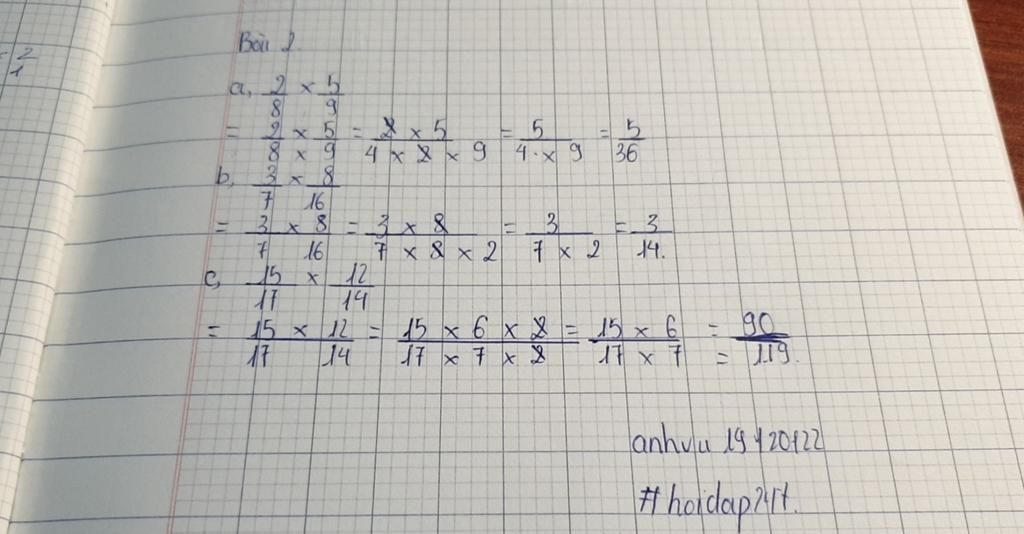 2
1
Bài 2
a, 2/8 × 5/9
= 2 × 5 / 8 × 9 = 2 × 5 / 4 × 2 × 9 = 5 / 4 × 9 = 5/36
b, 3/7 × 8/16
= 3 × 8 / 7 16 = 3 × 8 / 7 × 8 × 2 = 3 / 7 × 2 = 3/14.
c, 15/17 × 12/14
= 15 × 12 / 17 14 = 15 × 6 × 2 / 17 × 7 × 2 = 15 × 6 / 17 × 7 = 90 / = 119.
#hoidap247.